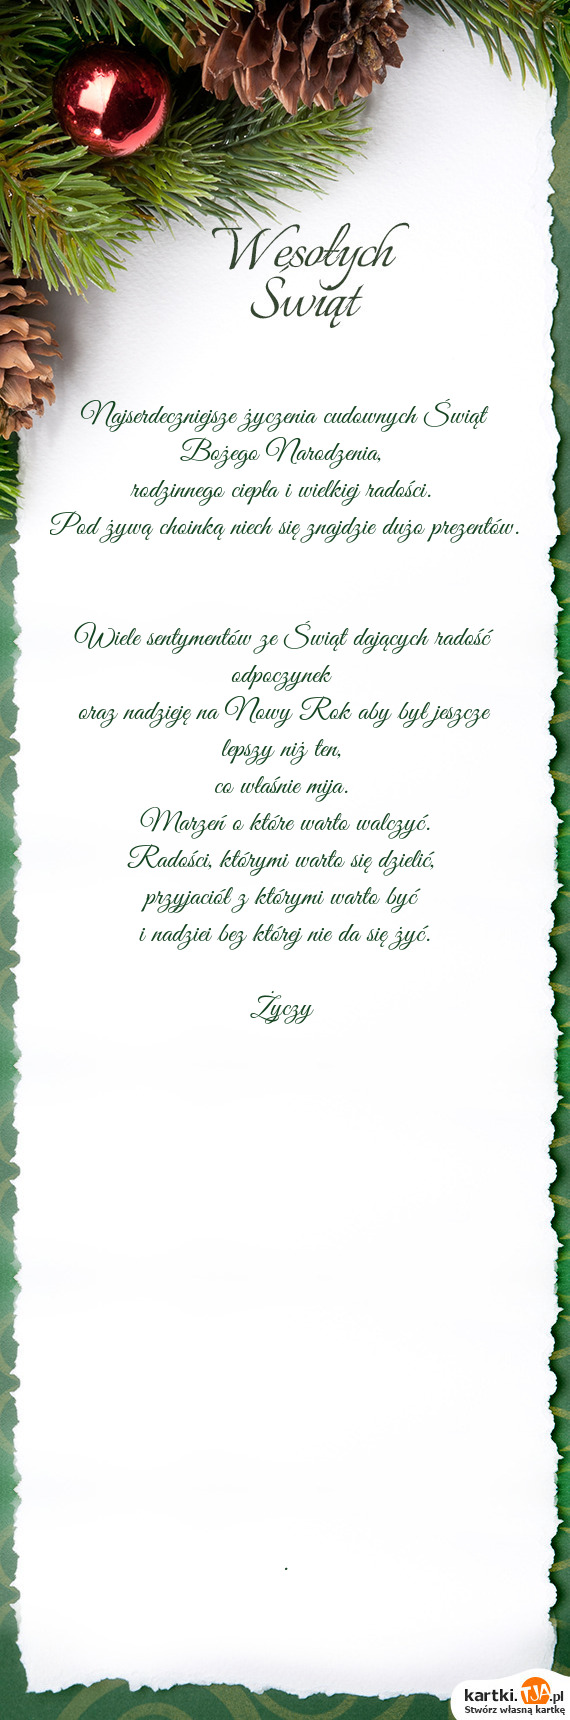 Wesołych
Świąt
Najserdeczniejsze życzenia cudownych Świąt
Bożego Narodzenia,
rodzinnego ciepła i wielkiej radości.
Pod żywą choinką niech się znajdzie dużo prezentów.
Wiele sentymentów ze Świąt dających radość
odpoczynek
oraz nadzieję na Nowy Rok aby był jeszcze
lepszy niż ten,
co właśnie mija.
Marzeń o które warto walczyć.
Radości, którymi warto się dzielić,
przyjaciół z którymi warto być
i nadziei bez której nie da się żyć.
Życzy
.
kartki.TJA.pl
Stwórz własną kartkę